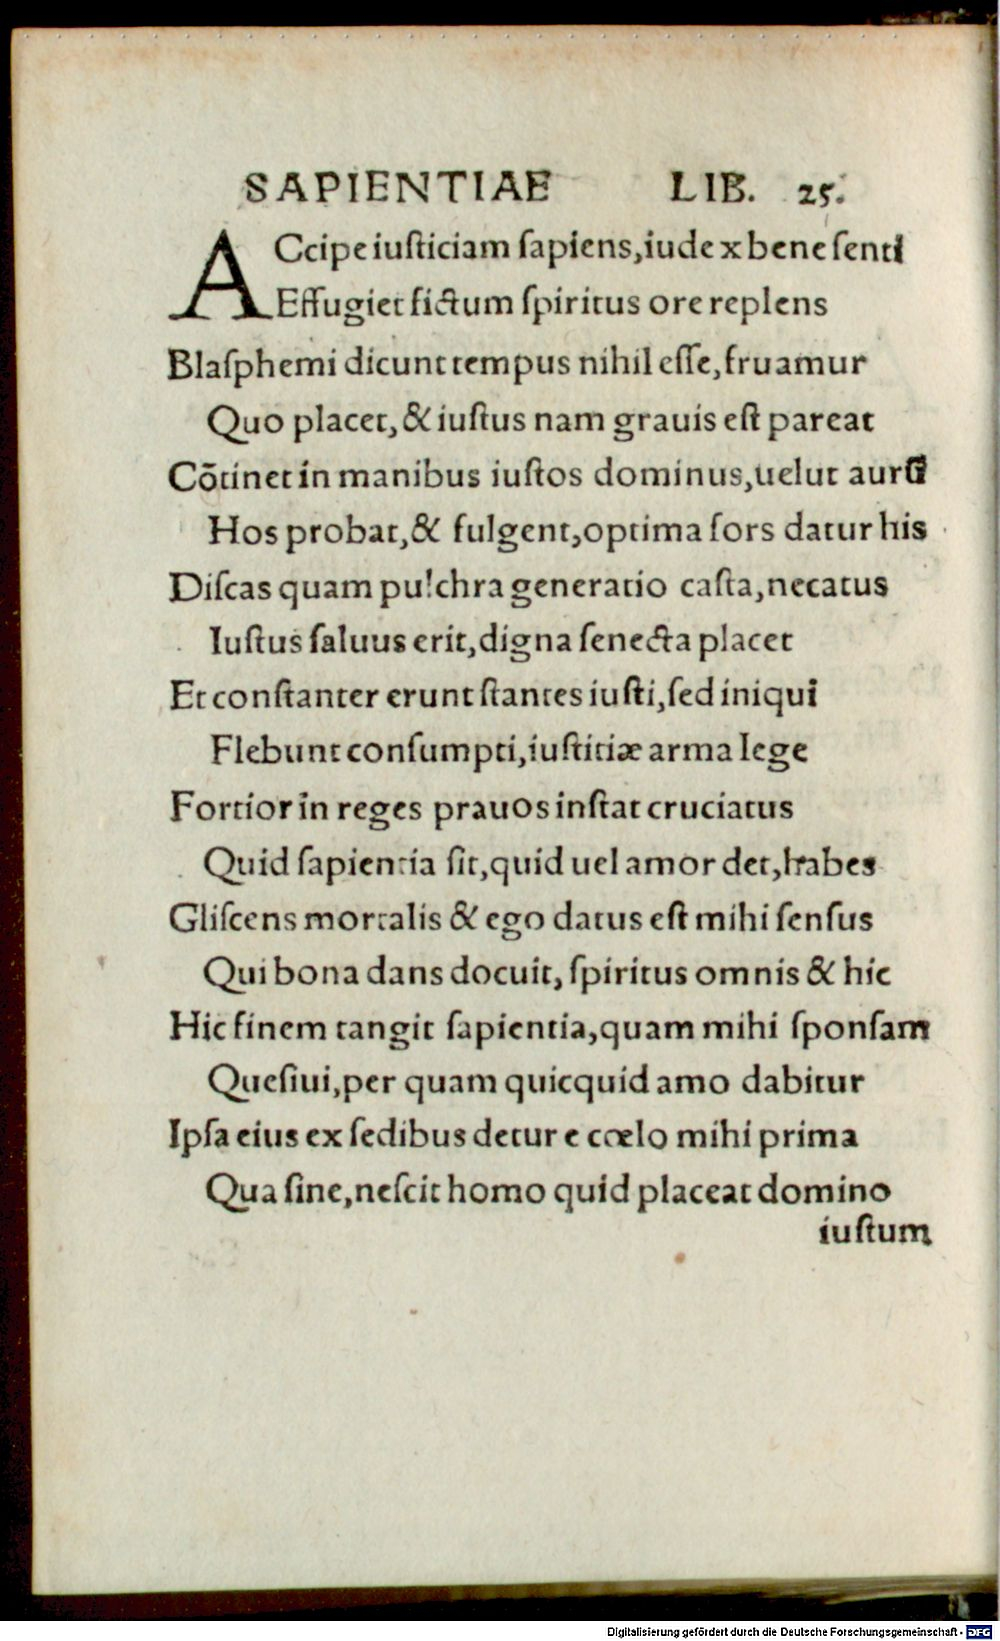 SAPIENTIAE LIB. 25.
ACcipe iuſticiam ſapiens,iudex bene ſenti
Effugiet fictum ſpiritus ore replens
Blaſphemi dicunt tempus nihil eſſe,fruamur
Quo placet,& iuſtus nam grauis eſt pareat
Cõtinet in manibus iuſtos dominus,uelut aurũ
Hos probat,& fulgent,optima ſors datur his
Diſcas quam pulchra generatio caſta,necatus
Iuſtus ſaluus erit,digna ſenecta placet
Et conſtanter erunt ſtantes iuſti,ſed iniqui
Flebunt conſumpti,iuſtitiæ arma lege
Fortior in reges prauos inſtat cruciatus
Quid ſapientia ſit,quid uel amor det,habes
Gliſcens mortalis & ego datus eſt mihi ſenſus
Qui bona dans docuit, ſpiritus omnis & hic
Hic finem tangit ſapientia,quam mihi ſponſam
Queſiui,per quam quicquid amo dabitur
Ipſa eius ex ſedibus detur e cœlo mihi prima
Qua ſine,neſcit homo quid placeat domino
iuſtum
Digitalisierung gefördert durch die Deutsche Forschungsgemeinschaft - DFG